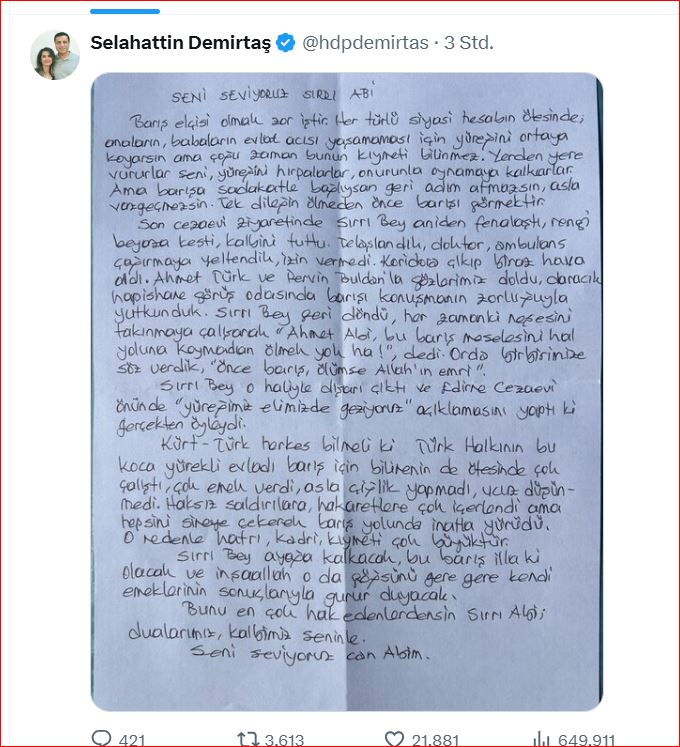 Selahattin Demirtaş @hdpdemirtas · 3 Std.
SENİ SEVİYORUZ SIRRI ABİ
Barış elçisi olmak zor iştir. Her türlü siyasi hesabın ötesinde;
anaların, babaların evlat acısı yaşamaması için yüreğini ortaya
koyarsın ama çoğu zaman bunun kıymeti bilinmez. Yerden yere
vururlar seni, yüreğini hırpalarlar, onurunla oynamaya kalkarlar.
Ama barışa sadakatle bağlıysan geri adım atmazsın, asla
vazgeçmezsin. Tek dileğin ölmeden önce barışı görmektir.
Son cezaevi ziyaretinde Sırrı Bey aniden fenalaştı, rengi
beyaza kesti, kalbini tuttu. Telaşlandık, doktor, ambulans
çağırmaya yeltendik, izin vermedi. Koridora çıkıp biraz hava
aldı. Ahmet Türk ve Pervin Buldan'la gözlerimiz doldu, daracık
hapishane görüş odasında barışı konuşmanın zorluğuyla
yutkunduk. Sırrı Bey geri döndü, her zamanki neşesini
takınmaya çalışarak "Ahmet Abi, bu barış meselesini hal
yoluna koymadan ölmek yok ha!", dedi. Orda birbirimize
söz verdik, "önce barış, ölümse Allah'ın emri".
Sırrı Bey o haliyle dışarı çıktı ve Edirne Cezaevi
önünde "yüreğimiz elimizde geziyoruz" açıklamasını yaptı ki
gerçekten öyleydi.
Kürt-Türk herkes bilmeli ki Türk Halkının bu
koca yürekli evladı barış için bilinenin de ötesinde çok
çalıştı, çok emek verdi, asla çiğlik yapmadı, ucuz düşün-
medi. Haksız saldırılara, hakaretlere çok içerlendi ama
hepsini sineye çekerek barış yolunda inatla yürüdü.
O nedenle hatrı, kadri, kıymeti çok büyüktür.
Sırrı Bey ayağa kalkacak, bu barış illa ki
olacak ve inşaallah o da göğsünü gere gere kendi
emeklerinin sonuçlarıyla gurur duyacak.
Bunu en çok hak edenlerdensin Sırrı Abi;
dualarımız, kalbimiz seninle.
Seni seviyoruz can Abim.
421 3.613 21.881 649.911